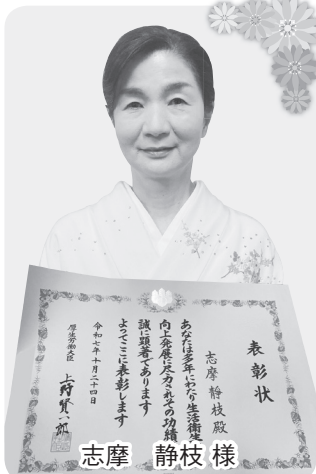 表彰状
志摩 静枝 殿
あなたは多年にわたり生活衛生
向上発展に尽力されその功績
誠に顕著であります
よってここに表彰します
令和七年十月二十四日
厚生労働大臣 上野賢一郎
志摩 静枝 様